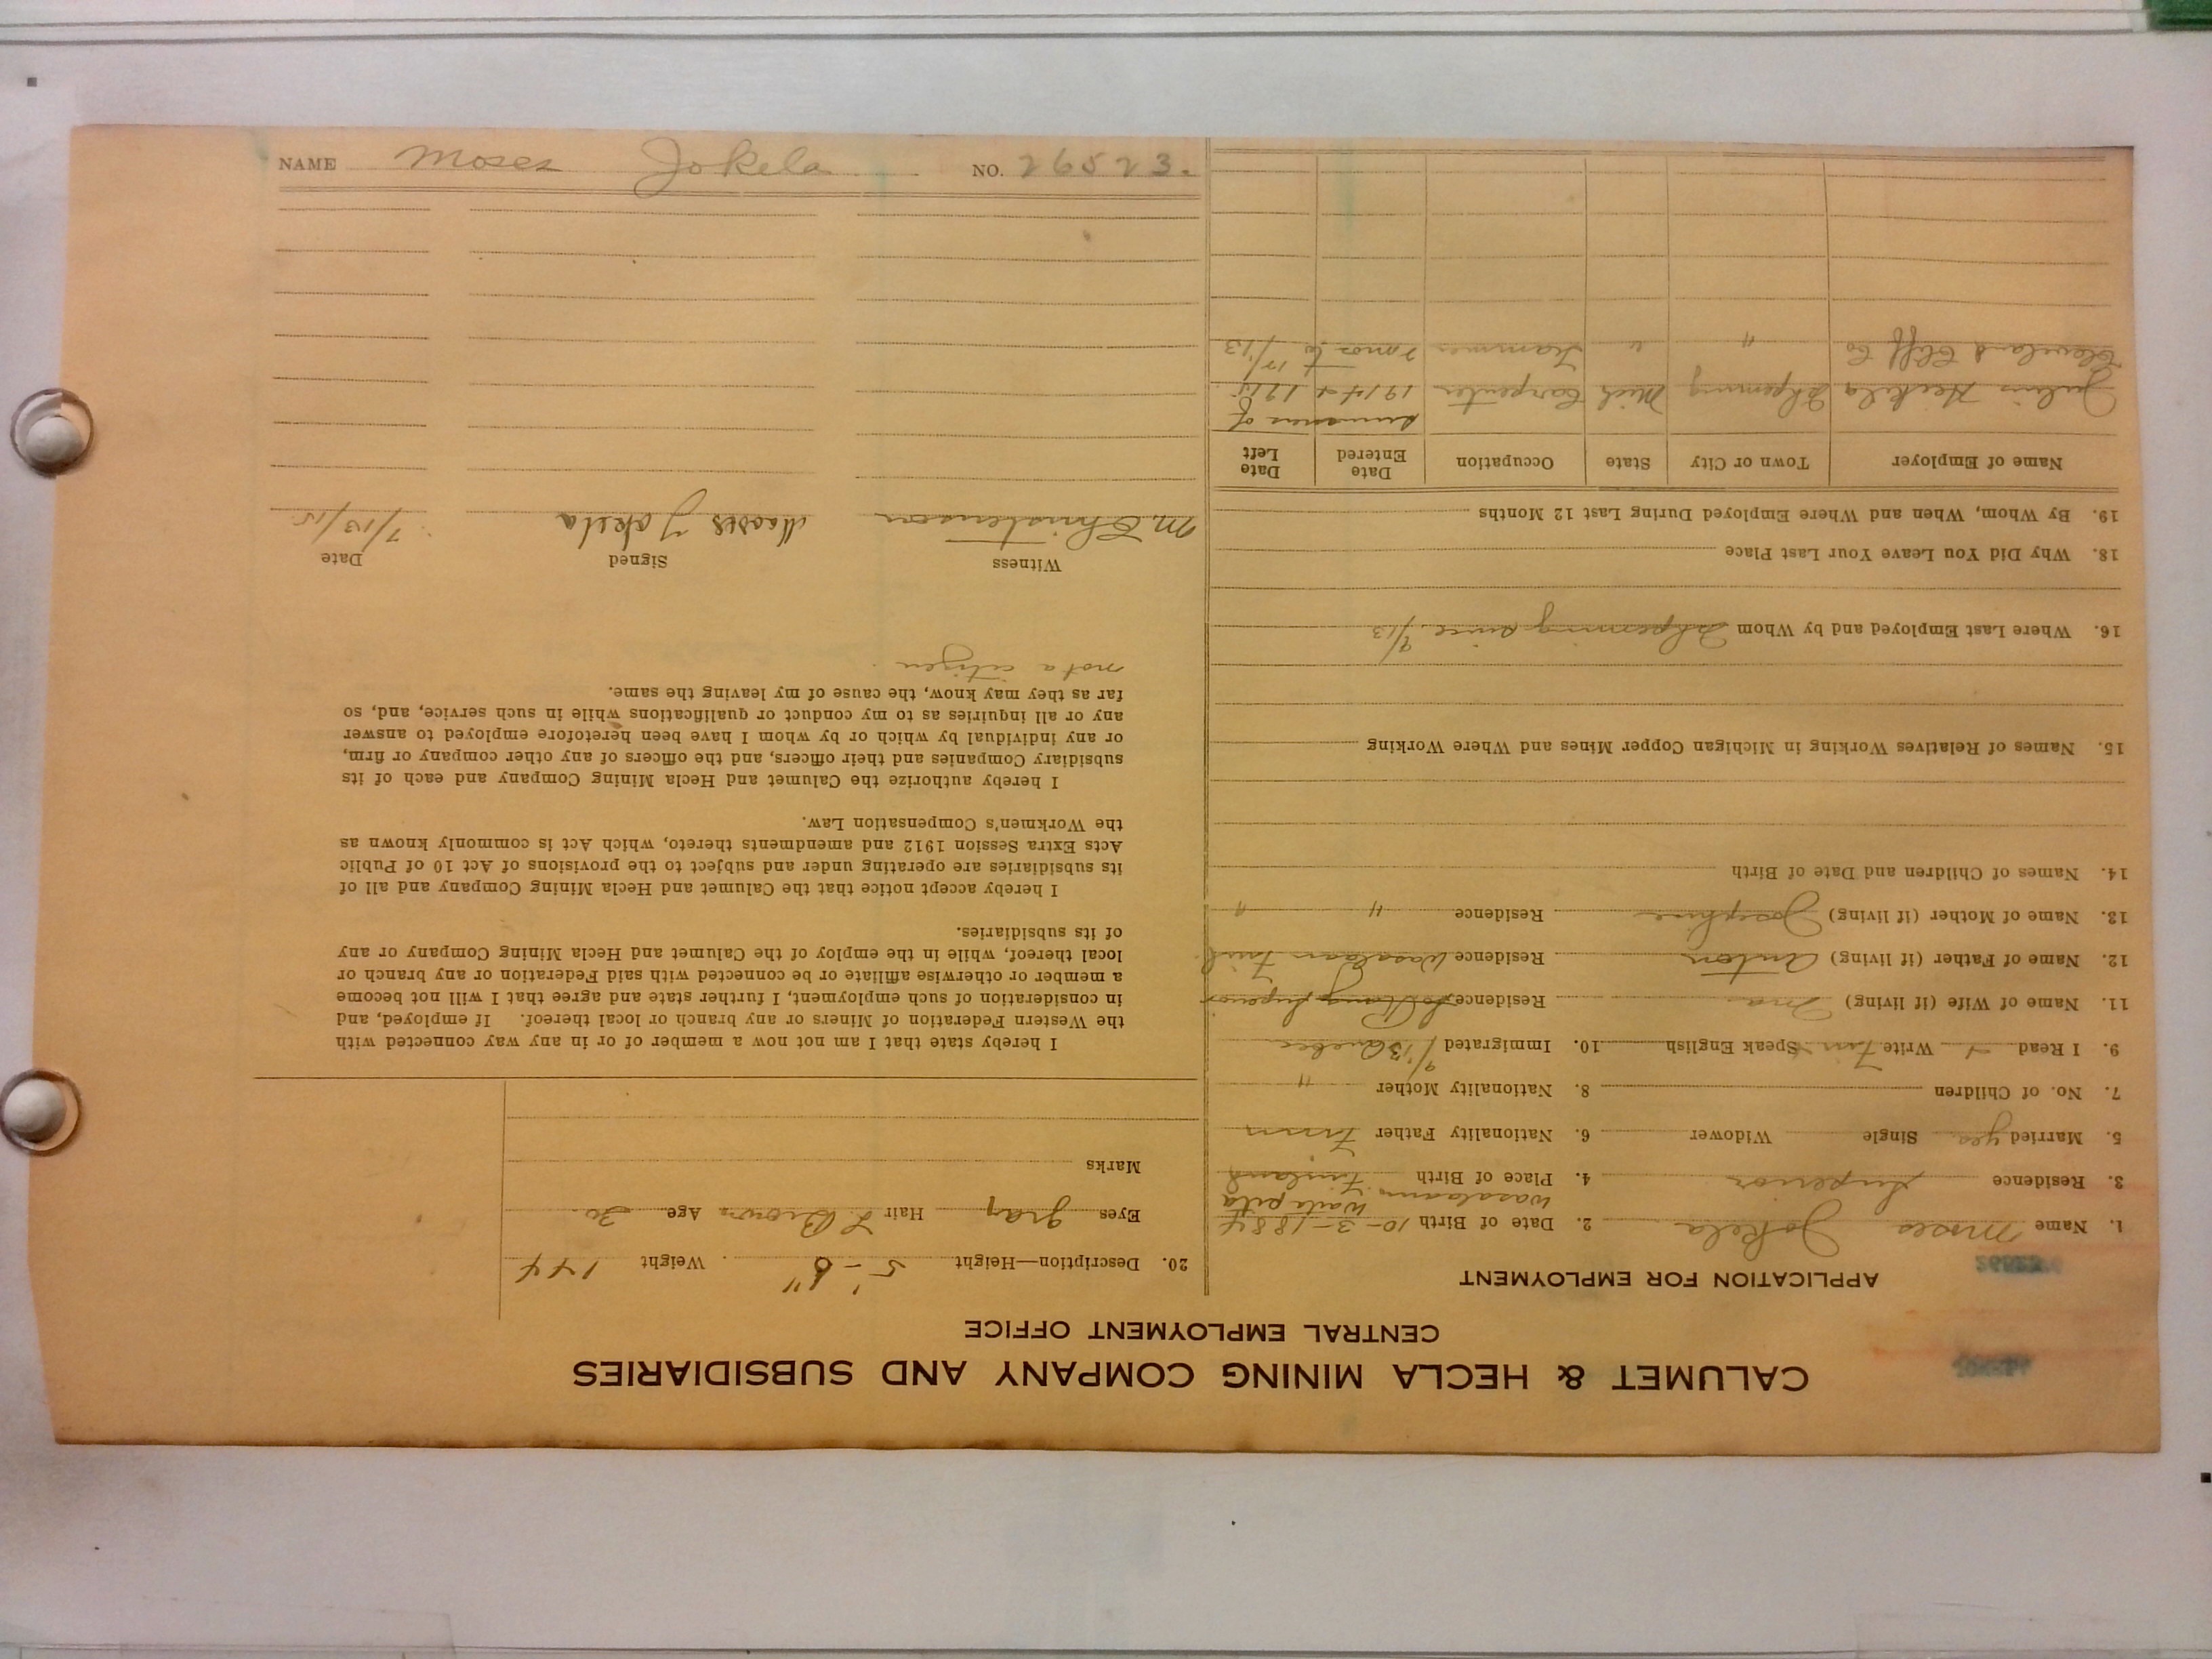 CALUMET & HECLA MINING COMPANY AND SUBSIDIARIES
CENTRAL EMPLOYMENT OFFICE
APPLICATION FOR EMPLOYMENT
1. Name Moses Jokela 2. Date of Birth 10-3-1884
Wasalaani
3. Residence Superior 4. Place of Birth Finland
5. Married yes Single Widower 6. Nationality Father Finn
7. No. of Children 8. Nationality Mother "
9. I Read Write Finn Speak English 10. Immigrated 9/13 Quebec
11. Name of Wife (if living) Residence
12. Name of Father (if living) Anton Residence Wasalaani Finl.
13. Name of Mother (if living) Josephine Residence " "
14. Names of Children and Date of Birth
15. Names of Relatives Working in Michigan Copper Mines and Where Working
16. Where Last Employed and by Whom Ishpeming since 9/13
18. Why Did You Leave Your Last Place
19. By Whom, When and Where Employed During Last 12 Months
Name of Employer Town or City State Occupation Date Entered Date Left
summers of
Julius Heikkila Ishpeming Mich Carpenter 1914 & 1915
Cleveland Cliff Co " " Trammer 2 mos to
20. Description—Height 5'-6" Weight 144
Eyes gray Hair L. Brown Age 30
Marks
I hereby state that I am not now a member of or in any way connected with
the Western Federation of Miners or any branch or local thereof. If employed, and
in consideration of such employment, I further state and agree that I will not become
a member or otherwise affiliate or be connected with said Federation or any branch or
local thereof, while in the employ of the Calumet and Hecla Mining Company or any
of its subsidiaries.
I hereby accept notice that the Calumet and Hecla Mining Company and all of
its subsidiaries are operating under and subject to the provisions of Act 10 of Public
Acts Extra Session 1912 and amendments thereto, which Act is commonly known as
the Workmen's Compensation Law.
I hereby authorize the Calumet and Hecla Mining Company and each of its
subsidiary Companies and their officers, and the officers of any other company or firm,
or any individual by which or by whom I have been heretofore employed to answer
any or all inquiries as to my conduct or qualifications while in such service, and, so
far as they may know, the cause of my leaving the same.
not a citizen.
Witness Signed Date
M. Christensen Mooses Jokela 7/13/15
NAME Moses Jokela NO. 26523.